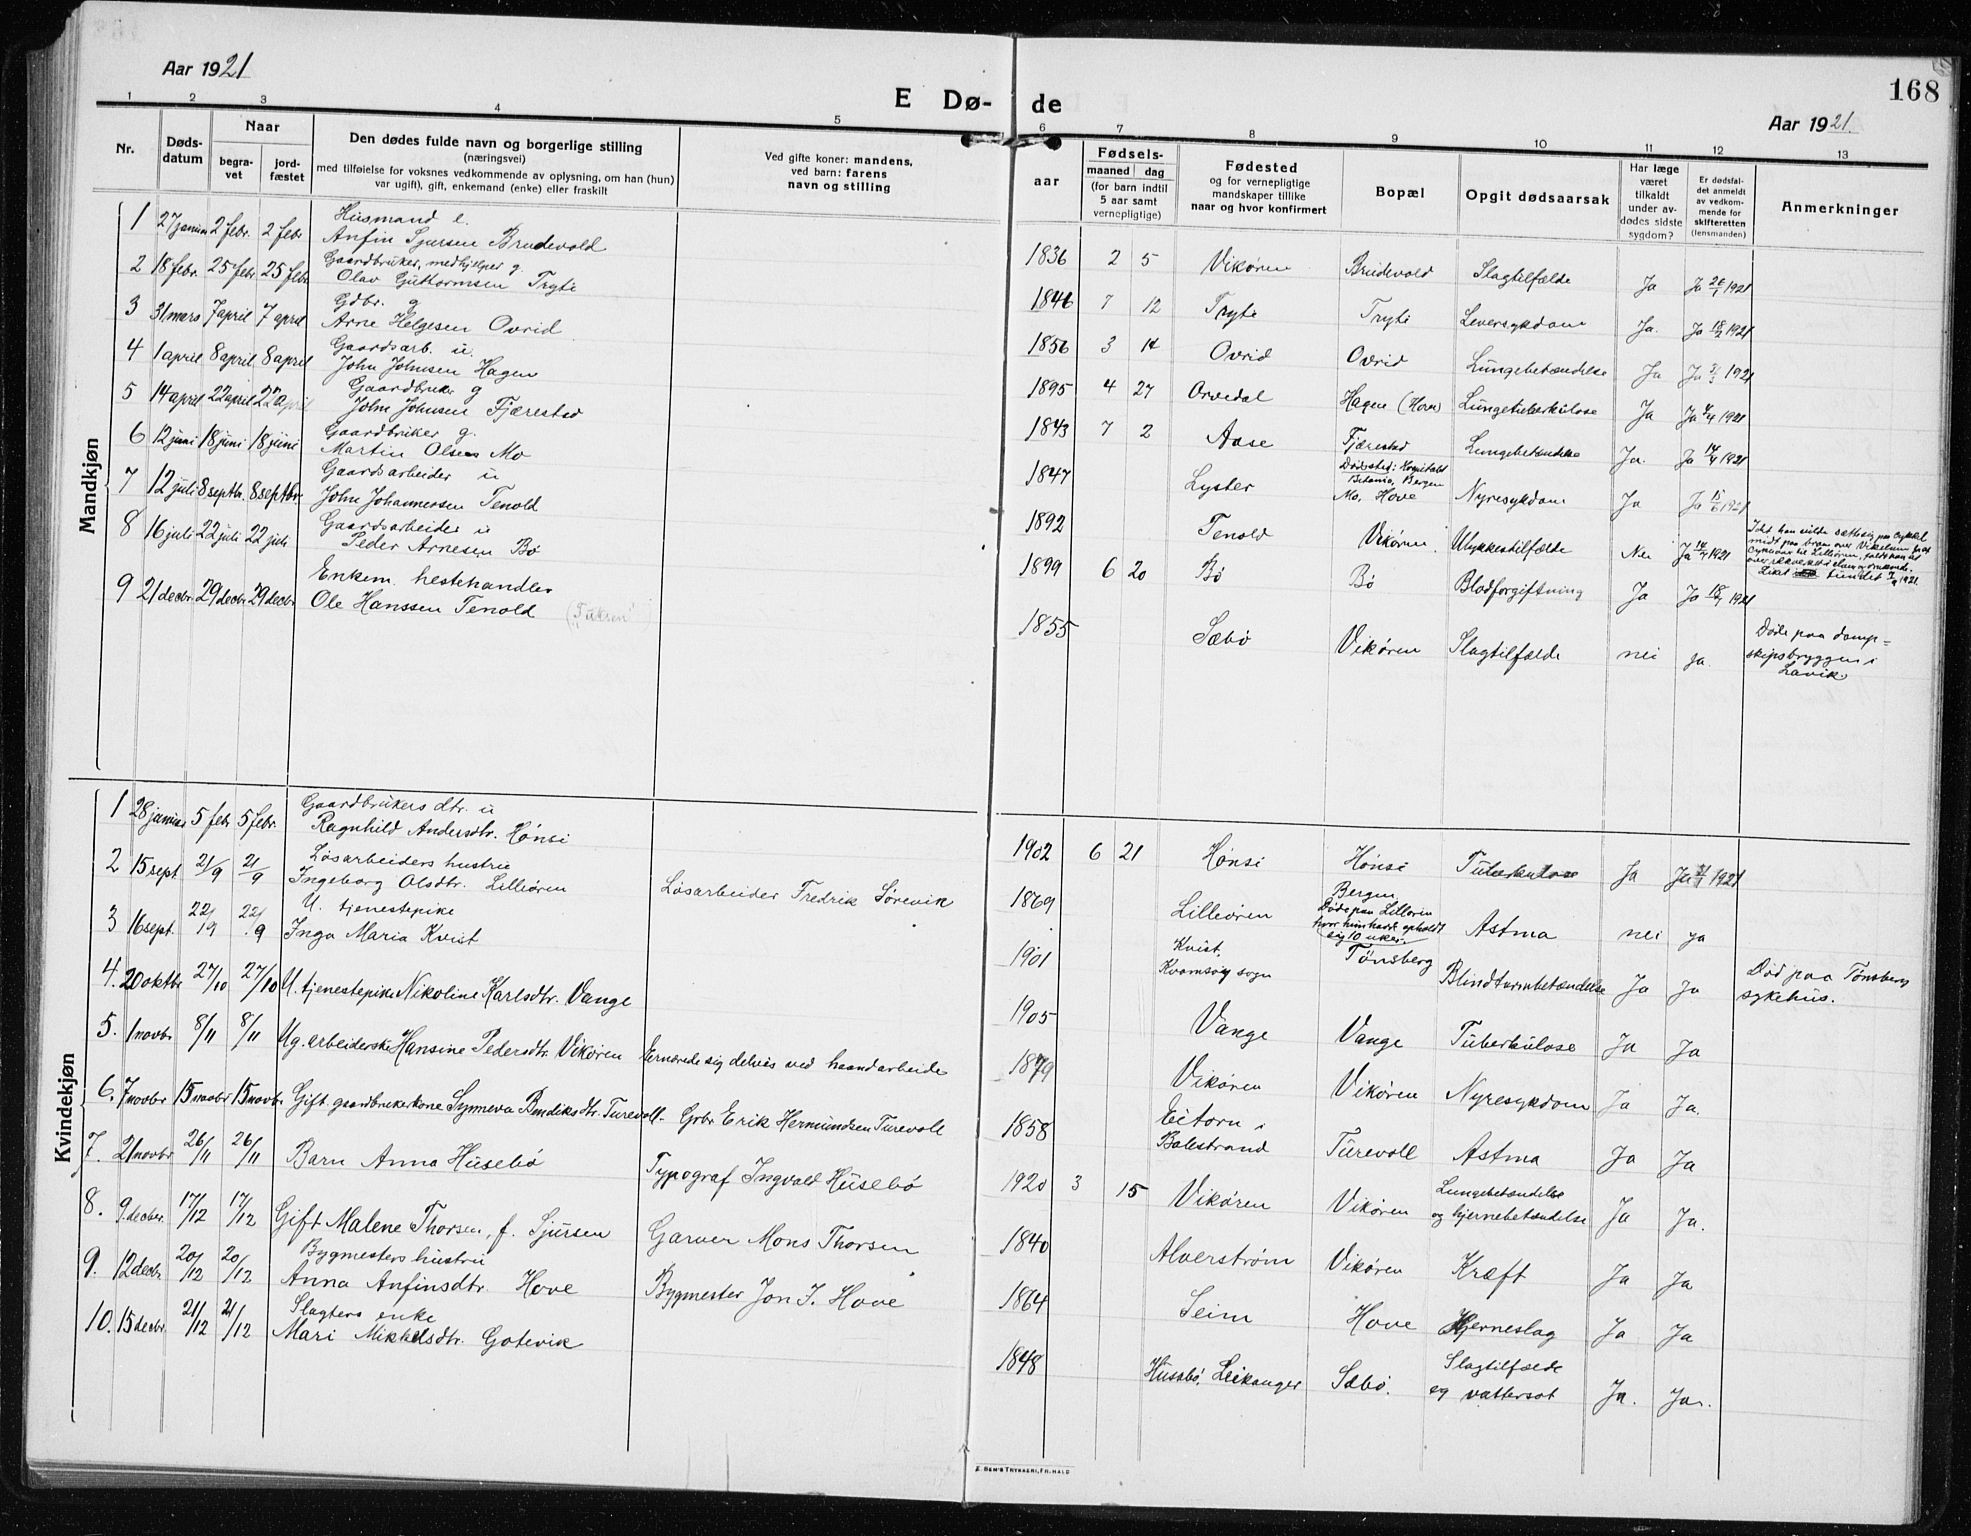 Aar 1921
E Dø-
de
168
Aar 1921
1 2 3 4 5 6 7 8 9 10 11 12 13
Nr.
Døds-
datum
Naar
begra-
vet
jord-
fæstet
Den dødes fulde navn og borgerlige stilling
(næringsvei)
med tilføielse for voksnes vedkommende av oplysning, om han (hun)
var ugift), gift, enkemand (enke) eller fraskilt
Ved gifte koner: mandens,
ved barn: farens
navn og stilling
Fødsels-
aar
maaned dag
(for barn indtil
5 aar samt
vernepligtige)
Fødested
og for vernepligtige
mandskaper tillike
naar og hvor konfirmert
Bopæl
Opgit dødsaarsak
Har læge
været
tilkaldt
under av-
dødes sidste
sygdom?
Er dødsfal-
det anmeldt
av vedkom-
mende for
skifteretten
(lensmanden)
Anmerkninger
Mandkjøn
Husmand e.
1 27 januar 2 febr. 2 febr Anfin Sjursen Brudevold
1836 2 5 Vikøren Brudevold Slagtilfælde Ja Ja 26/1 1921
Gaardbruker, medhjelper g.
2 18 febr. 25 febr 25 febr Olav Guttormsen Tryti
1846 7 12 Tryti Tryti Leversykdom Ja. Ja 18/2 1921
Gdbr. g
3 31 mars 7 april 7 april Arne Helgesen Ovrid
1856 3 14 Ovrid Ovrid Lungebetændelse Ja Ja 31/3 1921
Gaardsarb. u.
4 1 april 8 april 8 april John Johnsen Hagen
1895 4 27 Orvedal Hagen (Hove) Lungetuberkulose Ja Ja 4/4 1921
Gaardbruker g
5 14 april 22 april 22 april John Johnsen Fjærestad
1843 7 2 Aase Fjærestad Lungebetændelse Ja. Ja 14/4 1921
Gaardbruker g.
6 12 juni 18 juni 18 juni Martin Olsen Mo
1847 Lyster Dødssted: Hospitalet
Betania, Bergen
Mo, Hove Nyresykdom Ja Ja 15/6 1921
Gaardsarbeider u
7 12 juli 8 septbr. 8 septbr. John Johannessen Tenold
1892 Tenold Vikøren Ulykkestilfælde Nei Ja 14/7 1921
Idet han vilde sætte sig paa cykkel
midt paa broen over Vikelven
Liket fundet 7/9 1921
Gaardsarbeider u
8 16 juli 22 juli 22 juli Peder Arnesen Bø
1899 6 20 Bø Bø Blodforgiftning Ja Ja 18/7 1921
Enkem. hestehandler
9 21 decbr. 29 decbr 29 decbr. Ole Hanssen Tenold
1855 Sæbø Vikøren Slagtilfælde nei ja.
Døde paa damp-
skipsbryggen i
Lavik.
Kvindekjøn
Gaardbrukers dtr. u
1 28 januar 5 febr 5 febr. Ragnhild Andersdtr. Hønsi
1902 6 21 Hønsi Hønsi Tuberkulose Ja Ja 31/1 1921
Løsarbeiders hustru
2 15 sept 21/9 21/9 Ingeborg Olsdtr. Lilleøren Løsarbeider Fredrik Sørevik
1869 Lilleøren Bergen
Døde paa Lilleøren
hvor hun hadde opholdt
sig 10 uker. Astma nei ja
U. tjenestepike
3 16 sept. 22/9 22/9 Inga Maria Kvist
1901 Kvist,
Kvamsøy sogn Tønsberg Blindtarmbetændelse Ja Ja Død paa Tønsberg
sykehus.
4. 20 oktbr 27/10 27/10 U. tjenestepike Nikoline Karlsdtr. Vange
1905 Vange Vange Tuberkulose Ja Ja
5. 1 novbr 8/11 8/11 Ug. arbeiderske Hansine Pedersdtr. Vikøren Ernærede sig delvis ved haandarbeide
1879 Vikøren Vikøren Nyresykdom Ja Ja.
6. 7 novbr 15 novbr 15 novbr. Gift gaardbrukerkone Synneva Bendiksdtr. Turevoll. Grbr. Erik Hermundsen Turevoll
1858 Eitorn i
Balestrand Turevoll Astma Ja Ja
7. 21 novbr 26/11 26/11 Barn Anna Husebø Typograf Ingvald Husebø
1920 3 15 Vikøren Vikøren Lungebetændelse
og hjernebetændelse Ja Ja.
8. 9. decber. 17/12 17/12 Gift Malene Thorsen, f. Sjursen Garver Mons Thorsen
1840 Alverstrøm Vikøren Kræft Ja Ja
Bygmesters hustru
9. 12 decbr. 20/12 20/12 Anna Anfinsdtr. Hove Bygmester Jon J. Hove
1864 Seim Hove Hjerneslag Ja Ja
Slagters enke
10. 15 decbr. 21/12 21/12 Mari Mikkelsdtr. Gotevik
1848 Husabø, Leikanger Sæbø. Slagtilfælde
og vattersot Ja. Ja.
E. SEM'S TRYKKERI, FR.HALD